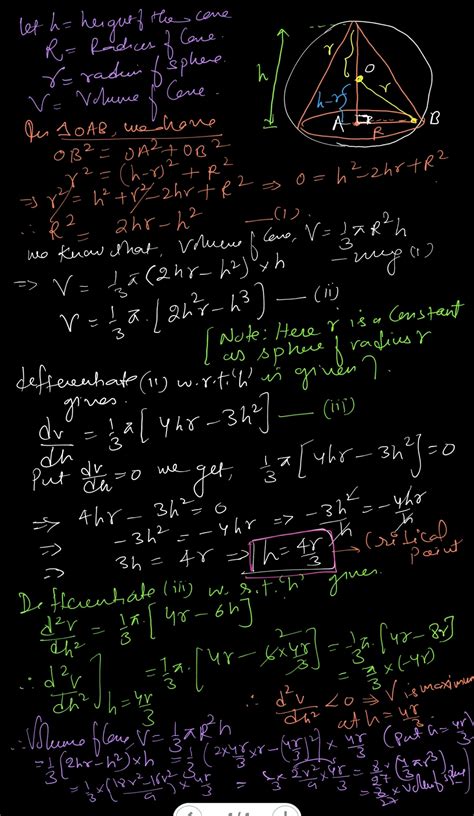 let h = height of the cone
R = Radius of Cone.
r = radius of sphere.
V = Volume of Cone.
h
r
O
h-r
r
A
R
B
In △OAB, we have
OB² = OA² + OB²
r² = (h-r)² + R²
⇒ r² = h² + r² - 2hr + R² ⇒ 0 = h² - 2hr + R²
∴ R² = 2hr - h² —(i)
we know that, Volume of Cone, V = 1/3 πR²h
⇒ V = 1/3 π(2hr - h²) × h - using (i)
V = 1/3 π. [2h²r - h³] — (ii)
[Note: Here r is a constant
as sphere of radius r
is given].
differentiate (ii) w.r.t. 'h'
gives.
dv/dh = 1/3 π[4hr - 3h²] — (iii)
Put dv/dh = 0 we get, 1/3 π[4hr - 3h²] = 0
⇒ 4hr - 3h² = 0
⇒ -3h² = -4hr ⇒ -3h²/h = -4hr/h
⇒ 3h = 4r ⇒ h = 4r/3 → Critical
Point
Differentiate (iii) w.r.t. 'h' gives.
d²v/dh² = 1/3 π. [4r - 6h]
∴ d²v/dh²]h = 4r/3 = 1/3 π. [4r - 6×4r/3] = 1/3 π. [4r - 8r]
= π/3 × (-4r)
∴ d²v/dh² < 0 ⇒ V is maximum
at h = 4r/3
∴ Volume of Cone, V = 1/3 πR²h
= 1/3 (2hr - h²) × h = 1/3 (2×4r/3 × r - (4r/3)²) × 4r/3 (Put h = 4r/3)